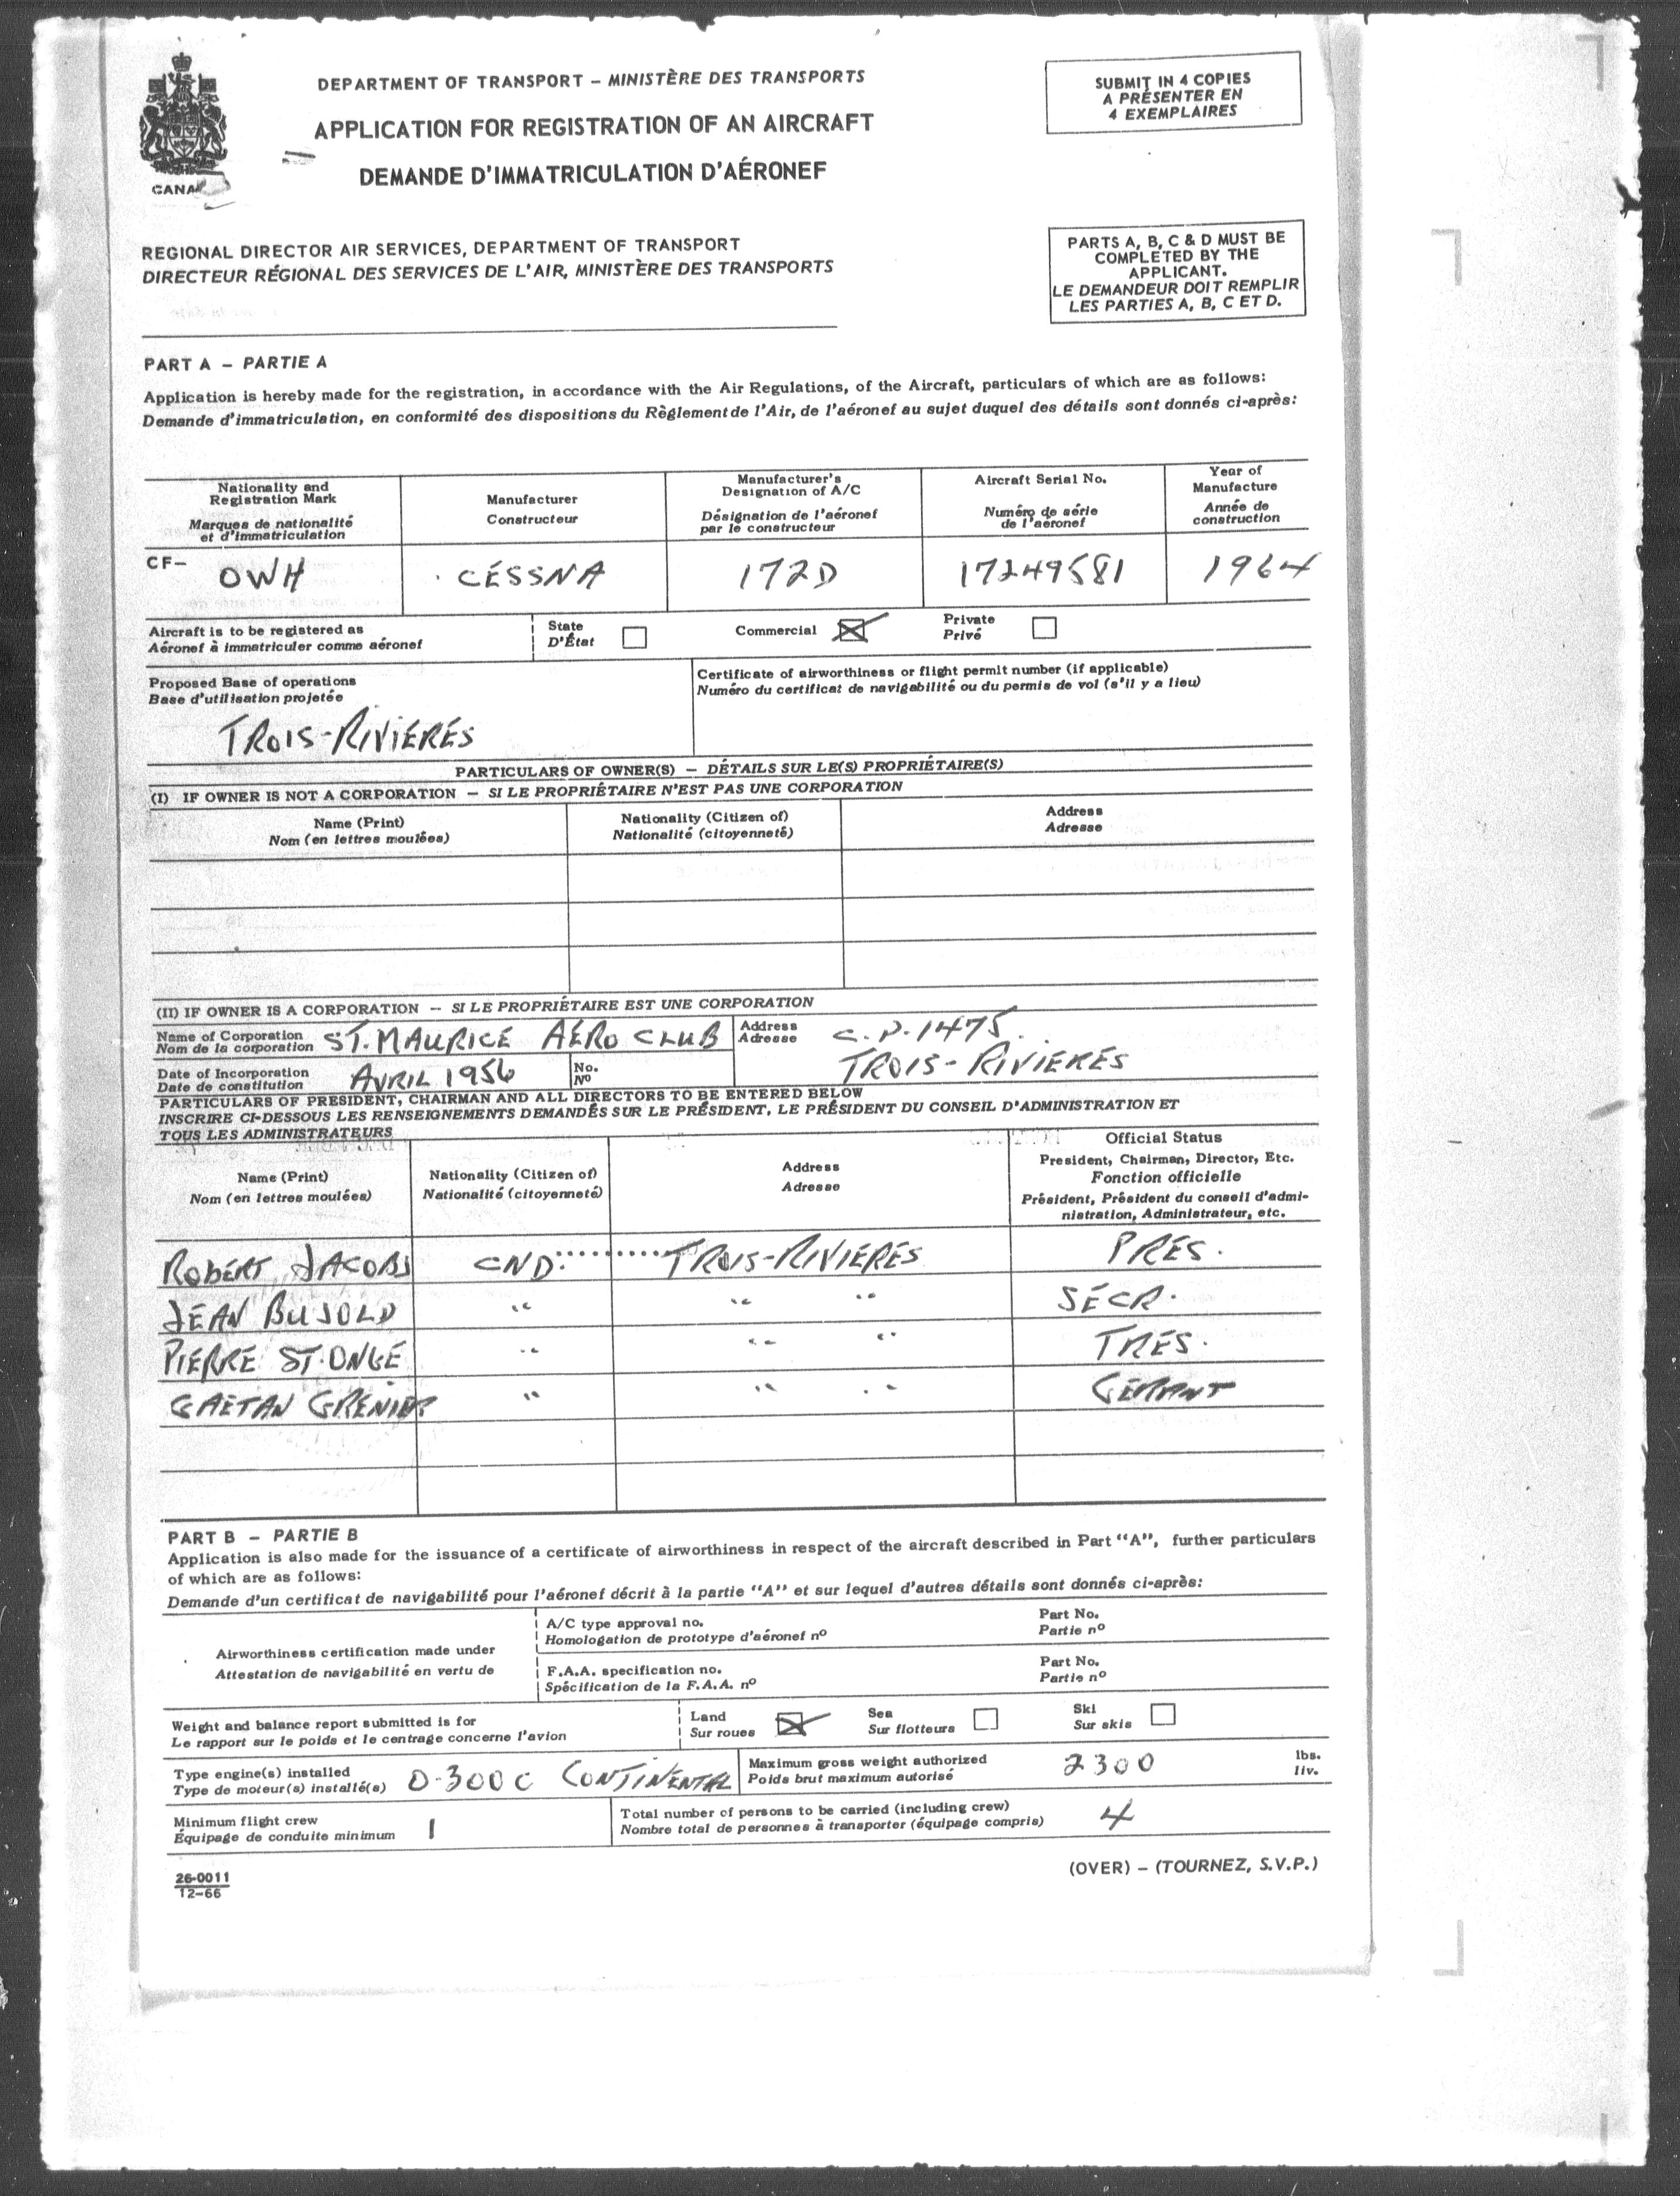 DEPARTMENT OF TRANSPORT – MINISTÈRE DES TRANSPORTS
APPLICATION FOR REGISTRATION OF AN AIRCRAFT
DEMANDE D'IMMATRICULATION D'AÉRONEF
SUBMIT IN 4 COPIES
A PRÉSENTER EN
4 EXEMPLAIRES
REGIONAL DIRECTOR AIR SERVICES, DEPARTMENT OF TRANSPORT
DIRECTEUR RÉGIONAL DES SERVICES DE L'AIR, MINISTÈRE DES TRANSPORTS
PARTS A, B, C & D MUST BE
COMPLETED BY THE
APPLICANT.
LE DEMANDEUR DOIT REMPLIR
LES PARTIES A, B, C ET D.
PART A – PARTIE A
Application is hereby made for the registration, in accordance with the Air Regulations, of the Aircraft, particulars of which are as follows:
Demande d'immatriculation, en conformité des dispositions du Règlement de l'Air, de l'aéronef au sujet duquel des détails sont donnés ci-après:
Nationality and
Registration Mark
Marques de nationalité
et d'immatriculation
Manufacturer
Constructeur
Manufacturer's
Designation of A/C
Désignation de l'aéronef
par le constructeur
Aircraft Serial No.
Numéro de série
de l'aéronef
Year of
Manufacture
Année de
construction
CF– OWH CESSNA 172D 17249581 1964
Aircraft is to be registered as
Aéronef à immatriculer comme aéronef
State
D'État
Commercial
Private
Privé
Proposed Base of operations
Base d'utilisation projetée
TROIS-RIVIERES
Certificate of airworthiness or flight permit number (if applicable)
Numéro du certificat de navigabilité ou du permis de vol (s'il y a lieu)
PARTICULARS OF OWNER(S) – DÉTAILS SUR LE(S) PROPRIÉTAIRE(S)
(I) IF OWNER IS NOT A CORPORATION – SI LE PROPRIÉTAIRE N'EST PAS UNE CORPORATION
Name (Print)
Nom (en lettres moulées)
Nationality (Citizen of)
Nationalité (citoyenneté)
Address
Adresse
(II) IF OWNER IS A CORPORATION – SI LE PROPRIÉTAIRE EST UNE CORPORATION
Name of Corporation
Nom de la corporation
ST. MAURICE AERO CLUB
Address
Adresse
C.P. 1475.
TROIS-RIVIERES
Date of Incorporation
Date de constitution
AVRIL 1956
No.
Nº
PARTICULARS OF PRESIDENT, CHAIRMAN AND ALL DIRECTORS TO BE ENTERED BELOW
INSCRIRE CI-DESSOUS LES RENSEIGNEMENTS DEMANDÉS SUR LE PRÉSIDENT, LE PRÉSIDENT DU CONSEIL D'ADMINISTRATION ET
TOUS LES ADMINISTRATEURS
Name (Print)
Nom (en lettres moulées)
Nationality (Citizen of)
Nationalité (citoyenneté)
Address
Adresse
Official Status
President, Chairman, Director, Etc.
Fonction officielle
Président, Président du conseil d'admi-
nistration, Administrateur, etc.
ROBERT JACOBS CND. TROIS-RIVIERES PRES.
JEAN BUJOLD " " " SECR.
PIERRE ST-ONGE " " " TRES.
GAETAN GRENIER " " " GERANT
PART B – PARTIE B
Application is also made for the issuance of a certificate of airworthiness in respect of the aircraft described in Part "A", further particulars
of which are as follows:
Demande d'un certificat de navigabilité pour l'aéronef décrit à la partie "A" et sur lequel d'autres détails sont donnés ci-après:
Airworthiness certification made under
Attestation de navigabilité en vertu de
A/C type approval no.
Homologation de prototype d'aéronef nº
Part No.
Partie nº
F.A.A. specification no.
Spécification de la F.A.A. nº
Part No.
Partie nº
Weight and balance report submitted is for
Le rapport sur le poids et le centrage concerne l'avion
Land
Sur roues
Sea
Sur flotteurs
Ski
Sur skis
Type engine(s) installed
Type de moteur(s) installé(s)
O-300 C CONTINENTAL
Maximum gross weight authorized
Poids brut maximum autorisé
2300
lbs.
liv.
Minimum flight crew
Équipage de conduite minimum
1
Total number of persons to be carried (including crew)
Nombre total de personnes à transporter (équipage compris)
4
26-0011
12-66
(OVER) – (TOURNEZ, S.V.P.)